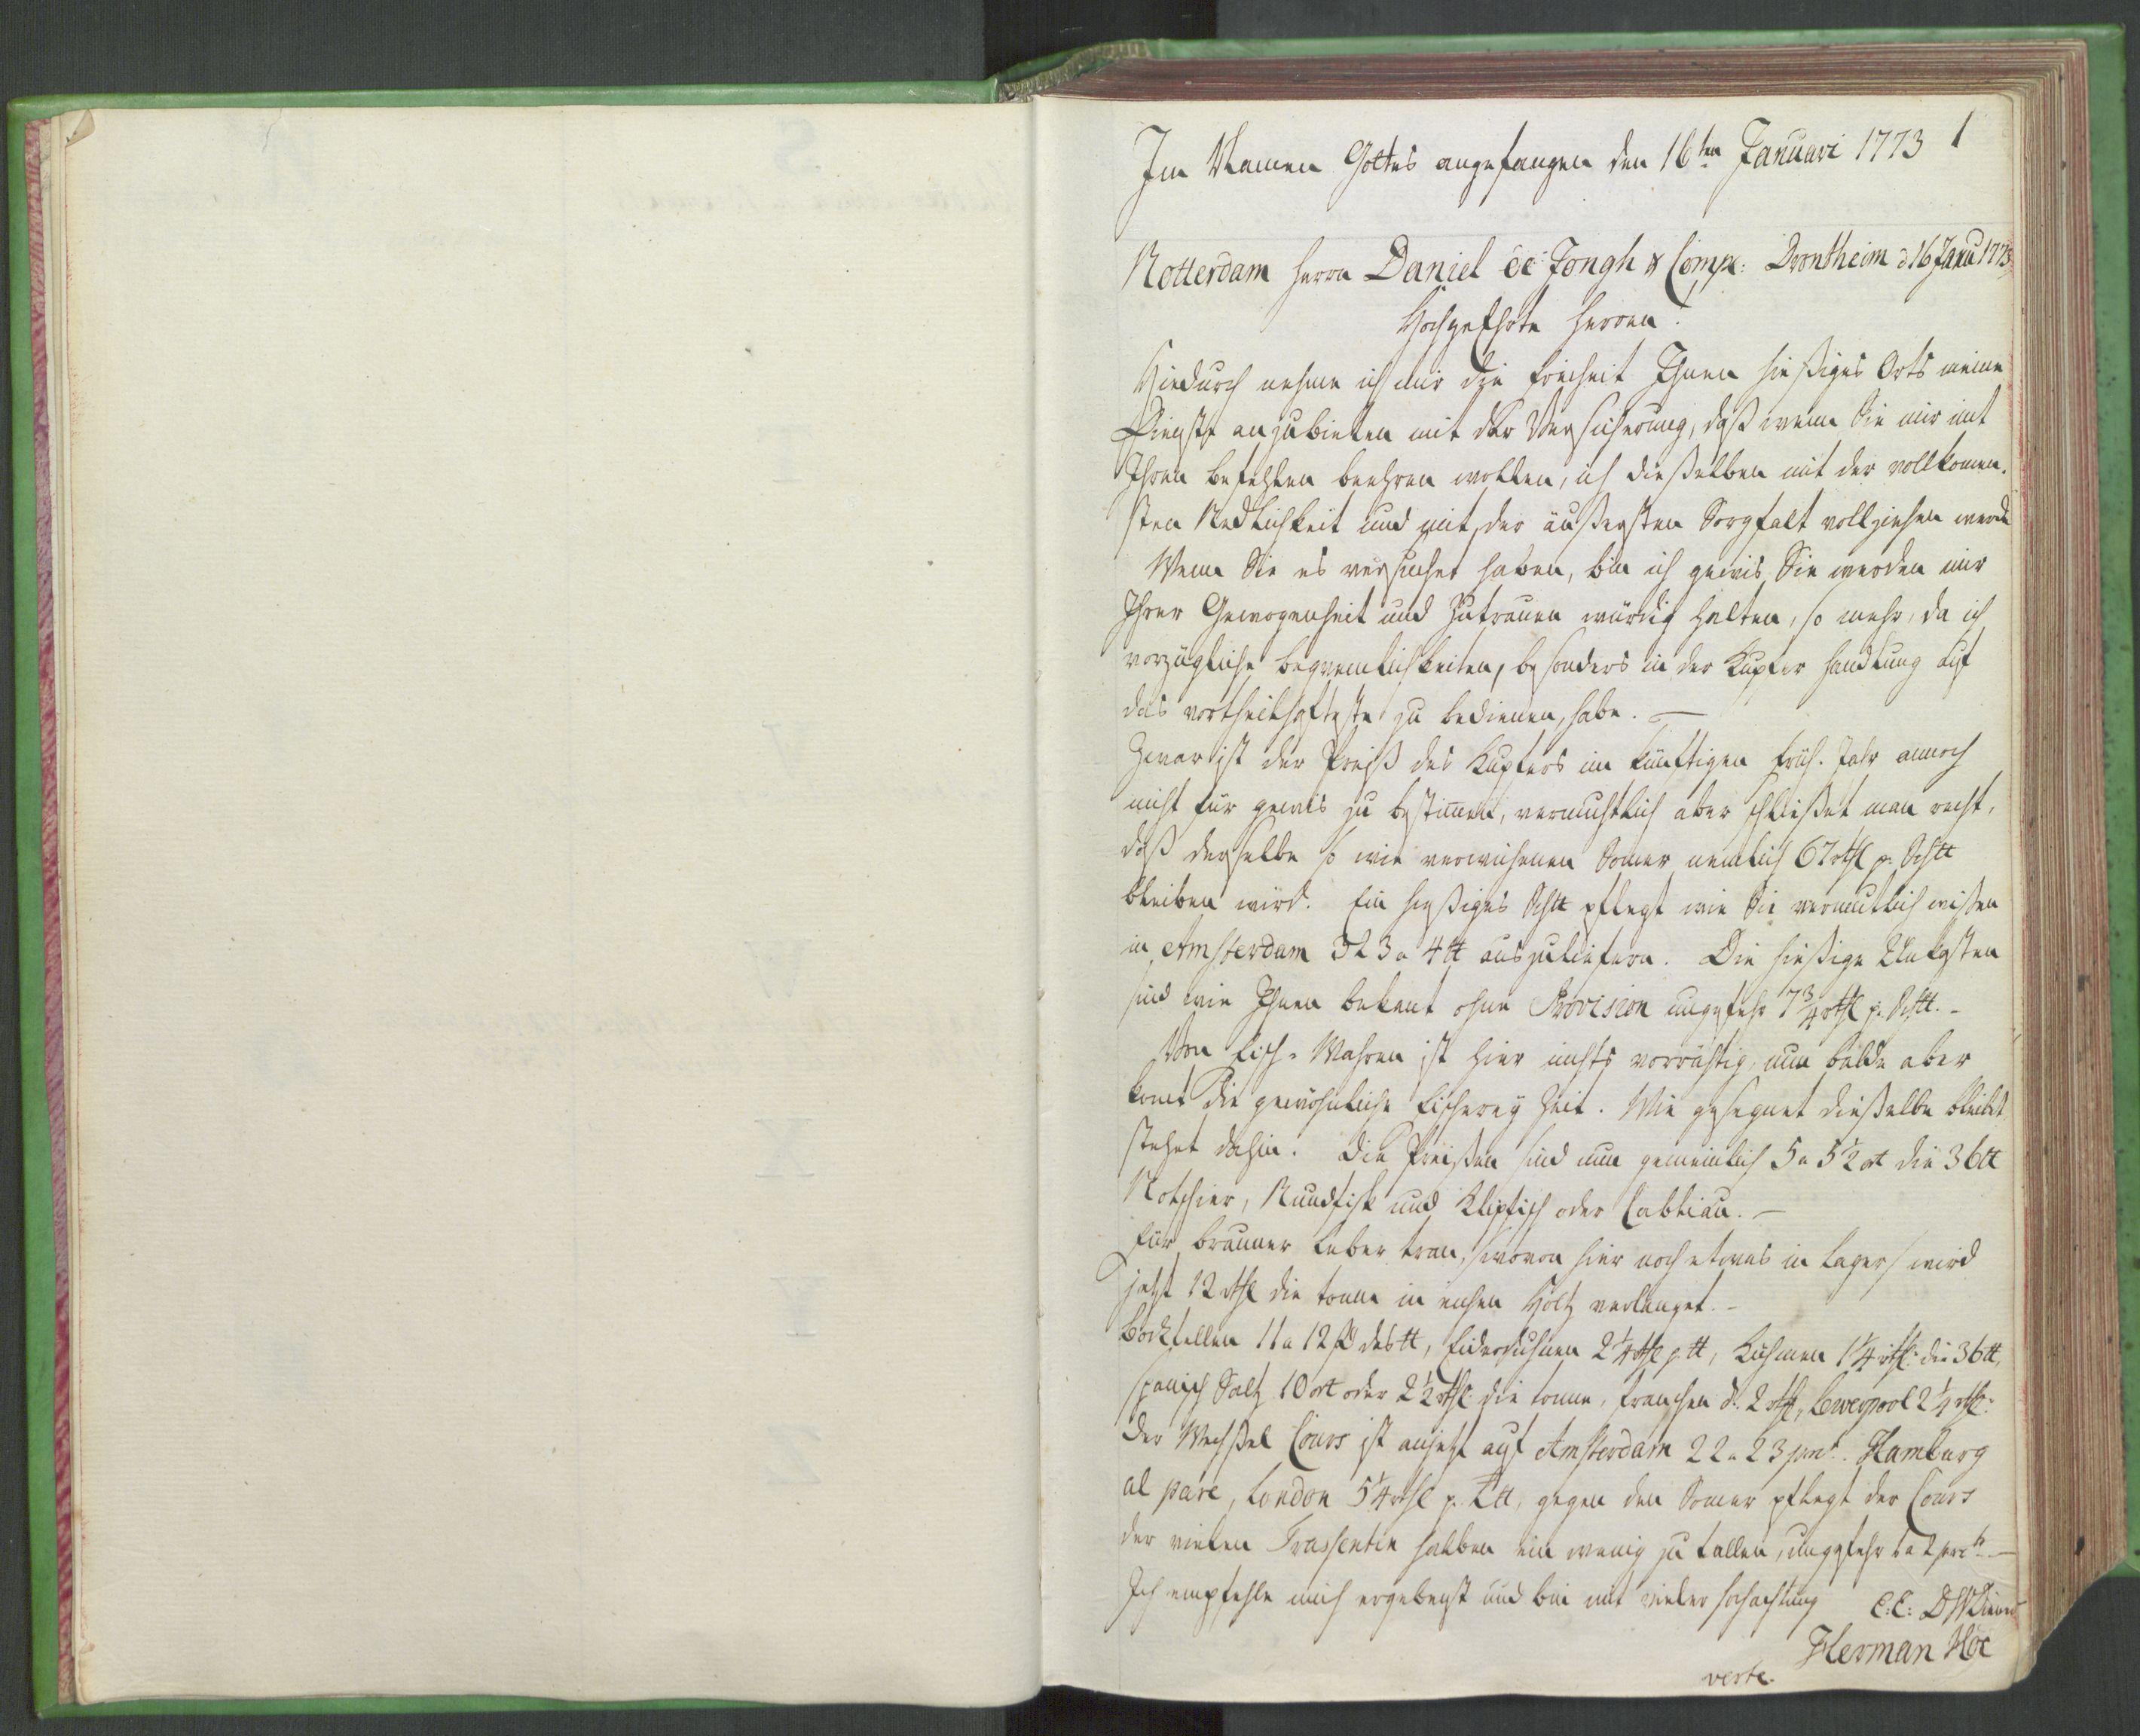 1
Im Namen Gottes angefangen den 16ten Januari 1773
Rotterdam Herrn Daniel de Jongh & Comp: Drontheim d 16 Janu 1773
HochgeEhrte Herren!
Hiedurch nehme ich mir die Freiheit Ihnen hießiges Orts meine
Dienste anzubieten mit der Versicherung, daß wenn Sie mir mit
Ihren Befehlen beehren wollen, ich dießelben mit der vollkomen-
sten Redlichkeit und mit der äußersten Sorgfalt vollziehen werde
Wenn Sie es versuchet haben, bin ich gewis Sie werden mir
Ihrer Gewogenheit und Zutrauen würdig halten, so mehr, da ich
vorzügliche Beqvemlichkeiten, besonders in der Kupfer Handlung auf
das vortheilhafteste zu bedienen, habe. —
Zwar ist der Preiß des Kupfers im künftigen Früh-Jahr annoch
nicht für gewis zu bestimen, vermuthlich aber schließet man recht,
daß derselbe so wie verwichenen Somer nemlich 67 rthl p. Schtt
bleiben wird. Ein hießiges Schtt pflegt wie Sie vermutlich wißen
in Amsterdam 323 a 4 tt auszuliefern. Die hießige Unkosten
sind wie Ihnen bekant ohne Provision ungefehr 7 3/4 rthl p. Schtt. -
Von Fisch-Wahren ist hier nichts vorräthig, nun balde aber
komt die gewöhnliche Fischerey Zeit. Wie gesegnet dießelbe bleibt
stehet dahin. Die Preißen sind nun gemeinlich 5 a 5 1/2 ort die 36 tt
Rotschier, Rundfisk und Klipfisch oder Cabliau. —
für brauner Leber tran, wovon hier noch etwas in Lager, wird
jetzt 12 rthl die tonne in eichen Holtz verlanget. -
Bockfellen 11 a 12 ß des tt, Eiderduhnen 2 1/4 rthl p tt, Kuhmen 1 1/4 rthl: die 36 tt,
Spanisch Saltz 10 ort oder 2 1/2 rthl: die tonne, franschen do. 2 rthl, Lewerpool 2 1/4 rthl:
der Wechßel Cours ist anjetzt auf Amsterdam 22 a 23 prct. Hamburg
al pare, London 5 1/4 rthl p. Ltt, gegen den Somer pflegt der Cours
der vielen Trassenten halben ein wenig zu fallen, ungefehr 1 a 2 prct. —
Ich empfehle mich ergebenst und bin mit vieler Hochachtung
Herman Hoe
verte.